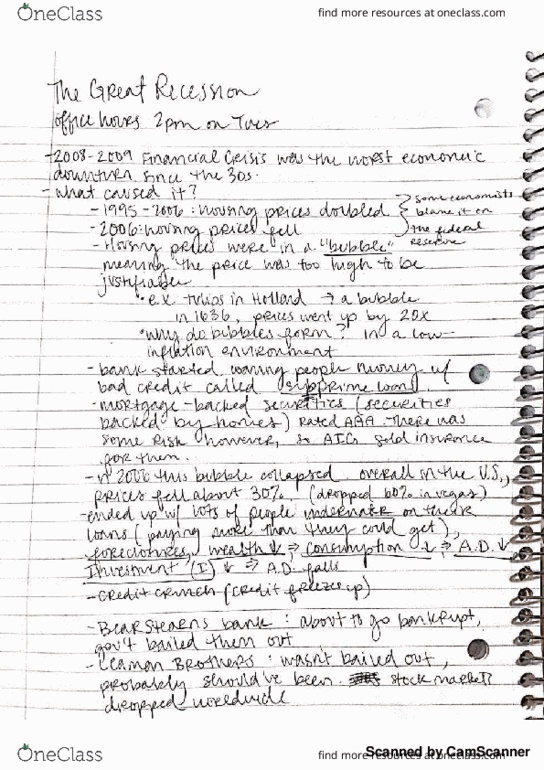 OneClass
find more resources at oneclass.com
The Great Recession
office hours 2pm on Tues
-2008-2009 Financial Crisis was the worst economic
downturn since the 30s.
- what caused it?
-1995-2006: housing prices doubled } some economists
-2006: housing prices fell } blame it on
the federal
reserve
-Housing prices were in a "bubble"
meaning the price was too high to be
justifiable
• ex tulips in Holland → a bubble
in 1636, prices went up by 20x
• why do bubbles form? in a low-
inflation environment
- bank started loaning people money w/
bad credit called (subprime loans).
-mortgage-backed securities (securities
backed by homes) rated AAA there was
some risk however, so AIG sold insurance
for them.
-in 2006 this bubble collapsed overall in the U.S,
prices fell about 30%, (dropped 60% in vegas)
-ended up w/ lots of people underwater on their
loans (paying more than they could get),
foreclosures, wealth ↓ ⇒ consumption ↓ ⇒ A.D. ↓
Investment (I) ↓ ⇒ A.D. falls
-credit crunch (credit freezes up)
-Bear Stearns bank: about to go bankrupt,
gov't bailed them out
-Leaman Brothers: wasn't bailed out,
probably should've been stock market
dropped worldwide
OneClass
find more resources at oneclass.com
Scanned by CamScanner